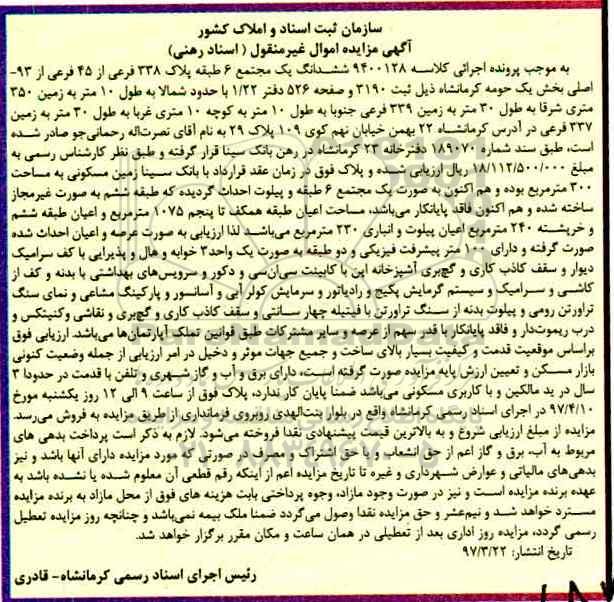 سازمان ثبت اسناد و املاک کشور
آگهی مزایده اموال غیرمنقول ( اسناد رهنی)
به موجب پرونده اجرائی کلاسه ۹۴۰۰۱۲۸ ششدانگ یک مجتمع ۶ طبقه پلاک ۳۳۸ فرعی از ۴۵ فرعی از ۹۳-
اصلی بخش یک حومه کرمانشاه ذیل ثبت ۳۱۹۰ و صفحه ۵۲۶ دفتر ۱/۲۲ با حدود شمالا به طول ۱۰ متر به زمین ۳۵۰
متری شرقا به طول ۳۰ متر به زمین ۳۳۹ فرعی جنوبا به طول ۱۰ متر به کوچه ۱۰ متری غربا به طول ۳۰ متر به زمین
۳۳۷ فرعی در آدرس کرمانشاه ۲۲ بهمن خیابان نهم کوی ۱۰۹ پلاک ۲۹ به نام آقای نصرت‌اله رحمانی‌جو صادر شده
است، طبق سند شماره ۱۸۹۰۷۰ دفترخانه ۲۳ کرمانشاه در رهن بانک سینا قرار گرفته و طبق نظر کارشناس رسمی به
مبلغ ۱۸/۱۱۲/۵۰۰/۰۰۰ ریال ارزیابی شده و پلاک فوق در زمان عقد قرارداد با بانک سینا زمین مسکونی به مساحت
۳۰۰ مترمربع بوده و هم اکنون به صورت یک مجتمع ۶ طبقه و پیلوت احداث گردیده که طبقه ششم به صورت غیرمجاز
ساخته شده و هم اکنون فاقد پایانکار می‌باشد، مساحت اعیان طبقه همکف تا پنجم ۱۰۷۵ مترمربع و اعیان طبقه ششم
و خرپشته ۲۴۰ مترمربع اعیان پیلوت و انباری ۲۳۰ مترمربع می‌باشد لذا ارزیابی به صورت عرصه و اعیان احداث شده
صورت گرفته و دارای ۱۰۰ متر پیشرفت فیزیکی و دو طبقه به صورت یک واحد۳ خوابه و هال و پذیرایی با کف سرامیک
دیوار و سقف کاذب کاری و گچ‌بری آشپزخانه اپن با کابینت سی‌ان‌سی و دکور و سرویس‌های بهداشتی با بدنه و کف از
کاشی و سرامیک و سیستم گرمایش پکیج و رادیاتور و سرمایش کولر آبی و آسانسور و پارکینگ مشاعی و نمای سنگ
تراورتن رومی و پیلوت بدنه از سنگ تراورتن با فیتیله چهار سانتی و سقف کاذب کاری و گچ‌بری و نقاشی وکنیتکس و
درب ریموت‌دار و فاقد پایانکار با قدر سهم از عرصه و سایر مشترکات طبق قوانین تملک آپارتمان‌ها می‌باشد. ارزیابی فوق
براساس موقعیت قدمت و کیفیت بسیار بالای ساخت و جمیع جهات موثر و دخیل در امر ارزیابی از جمله وضعیت کنونی
بازار مسکن و تعیین ارزش پایه مزایده صورت گرفته است، دارای برق و آب و گاز شهری و تلفن با قدمت در حدودا ۳
سال در ید مالکین و با کاربری مسکونی می‌باشد ضمنا پایان کار ندارد، پلاک فوق از ساعت ۹ الی ۱۲ روز یکشنبه مورخ
۹۷/۴/۱۰ در اجرای اسناد رسمی کرمانشاه واقع در بلوار بنت‌الهدی روبروی فرمانداری از طریق مزایده به فروش می‌رسد.
مزایده از مبلغ ارزیابی شروع و به بالاترین قیمت پیشنهادی نقدا فروخته می‌شود. لازم به ذکر است پرداخت بدهی های
مربوط به آب، برق و گاز اعم از حق انشعاب و یا حق اشتراک و مصرف در صورتی که مورد مزایده دارای آنها باشد و نیز
بدهی‌های مالیاتی و عوارض شهرداری و غیره تا تاریخ مزایده اعم از اینکه رقم قطعی آن معلوم شده یا نشده باشد به
عهده برنده مزایده است و نیز در صورت وجود مازاد، وجوه پرداختی بابت هزینه های فوق از محل مازاد به برنده مزایده
مسترد خواهد شد و نیم‌عشر و حق مزایده نقدا وصول می‌گردد ضمنا ملک بیمه نمی‌باشد و چنانچه روز مزایده تعطیل
رسمی گردد، مزایده روز اداری بعد از تعطیلی در همان ساعت و مکان مقرر برگزار خواهد شد.
تاریخ انتشار: ۹۷/۳/۲۲
رئیس اجرای اسناد رسمی کرمانشاه- قادری